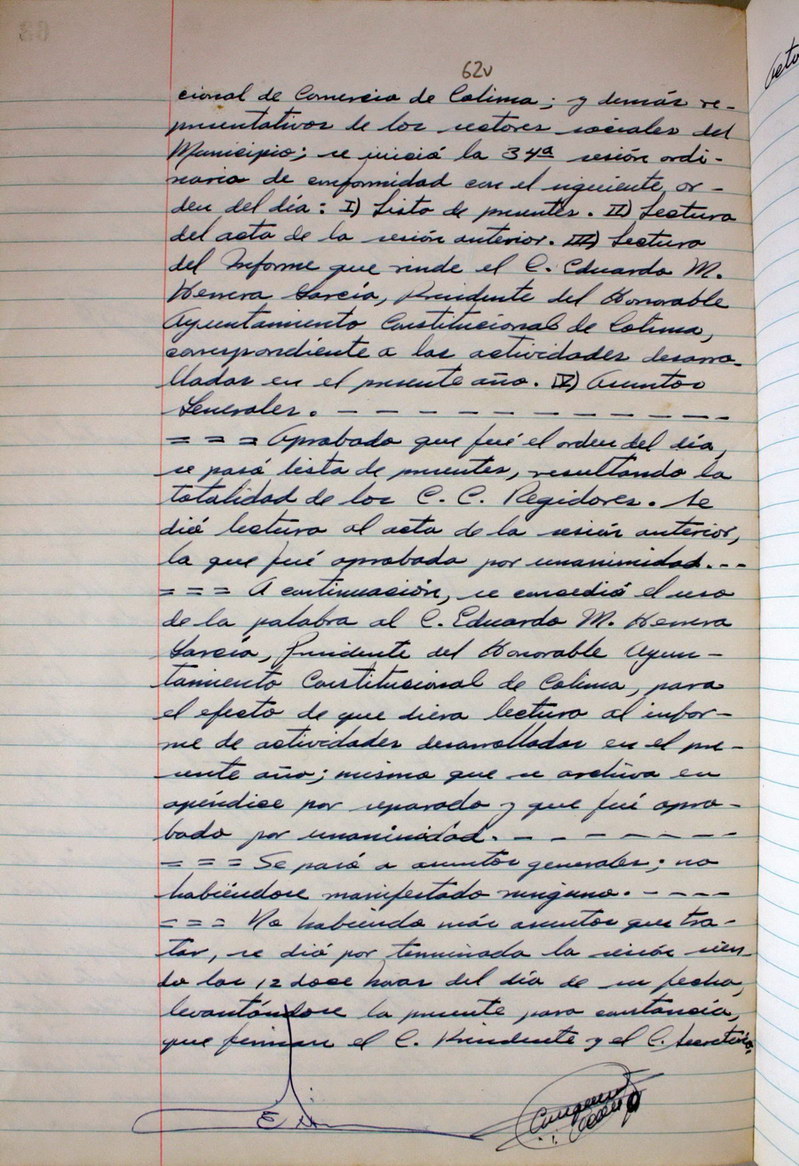 62v
cional de Comercio de Colima; y demás re-
presentativos de los sectores sociales del
Municipio; se inició la 34ª sesión ordi-
naria de conformidad con el siguiente or-
den del día: I) Lista de presentes. II) Lectura
del acta de la sesión anterior. III) Lectura
del Informe que rinde el C. Eduardo M.
Herrera García, Presidente del Honorable
Ayuntamiento Constitucional de Colima,
correspondiente a las actividades desarro-
lladas en el presente año. IV) Asuntos
Generales. - - - - - - - - - - - - - -
= = = Aprobado que fué el orden del día,
se pasó lista de presentes, resultando la
totalidad de los C. C. Regidores. Se
dió lectura al acta de la sesión anterior,
la que fué aprobada por unanimidad. - - -
= = = A continuación, se concedió el uso
de la palabra al C. Eduardo M. Herrera
García, Presidente del Honorable Ayun-
tamiento Constitucional de Colima, para
el efecto de que diera lectura al infor-
me de actividades desarrolladas en el pre-
sente año; mismo que se archiva en
apéndice por separado y que fué apro-
bado por unanimidad. - - - - - - - -
= = = Se pasó a asuntos generales; no
habiéndose manifestado ninguno. - - - -
= = = No habiendo más asuntos que tra-
tar, se dió por terminada la sesión sien-
do las 12 doce horas del día de su fecha,
levantándose la presente para constancia,
que firman el C. Presidente y el C. Secretario.